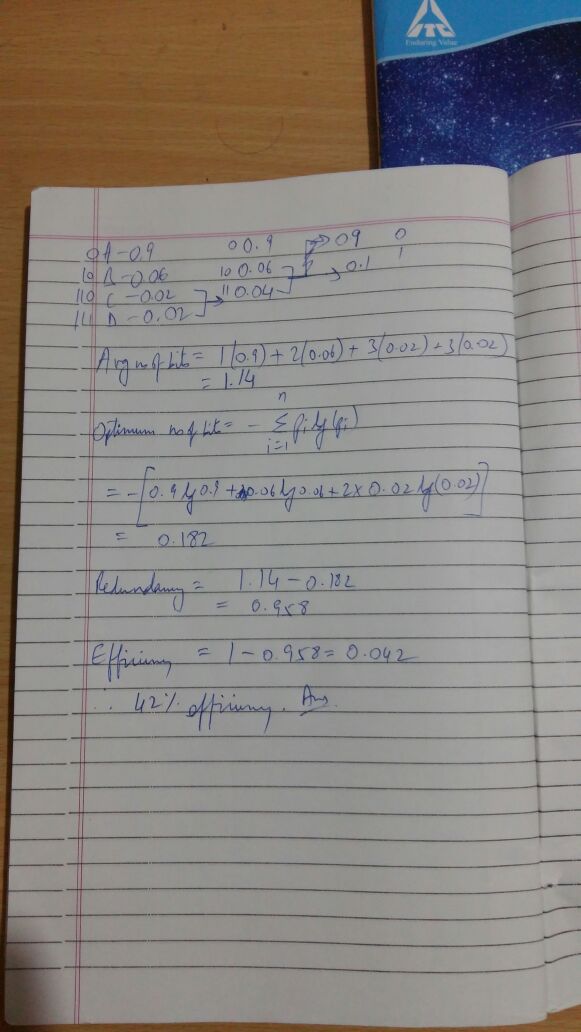 ITC
Enduring Value
0 A - 0.9 0 0.9 0.9 0
10 B - 0.06 10 0.06 0.1 1
110 C - 0.02 11 0.04
111 D - 0.02
Avg no of bits = 1(0.9) + 2(0.06) + 3(0.02) + 3(0.02)
= 1.14
Optimum no of bits = - n Σ i=1 Pi lg(Pi)
= -[0.9 lg 0.9 + 0.06 lg 0.06 + 2 x 0.02 lg(0.02)]
= 0.182
Redundancy = 1.14 - 0.182
= 0.958
Efficiency = 1 - 0.958 = 0.042
∴ 42% efficiency. Ans.